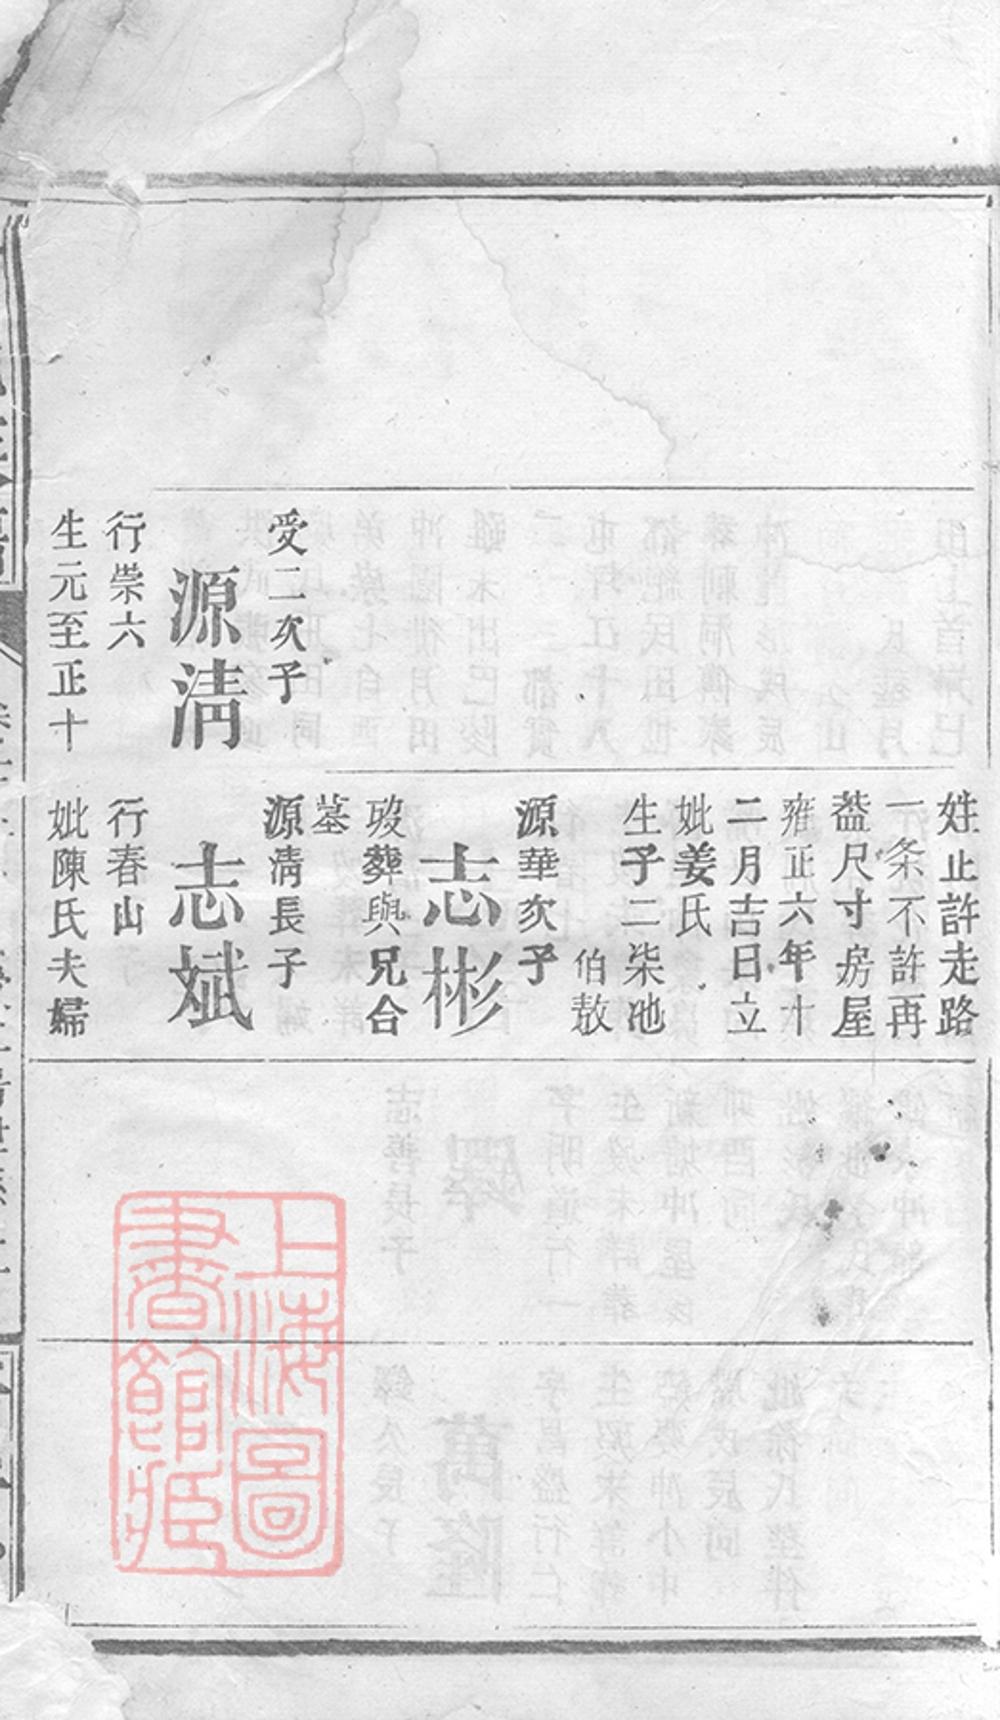 受二次子
源清
行崇六
生元至正十
姓止許走路
一条不許再
葢尺寸房屋
雍正六年十
二月吉日立
妣姜氏
生子二柴池
伯敖
源華次子
志彬
歿葬與兄合
墓
源清長子
志斌
行春山
妣陳氏夫婦
上海圖
書館藏